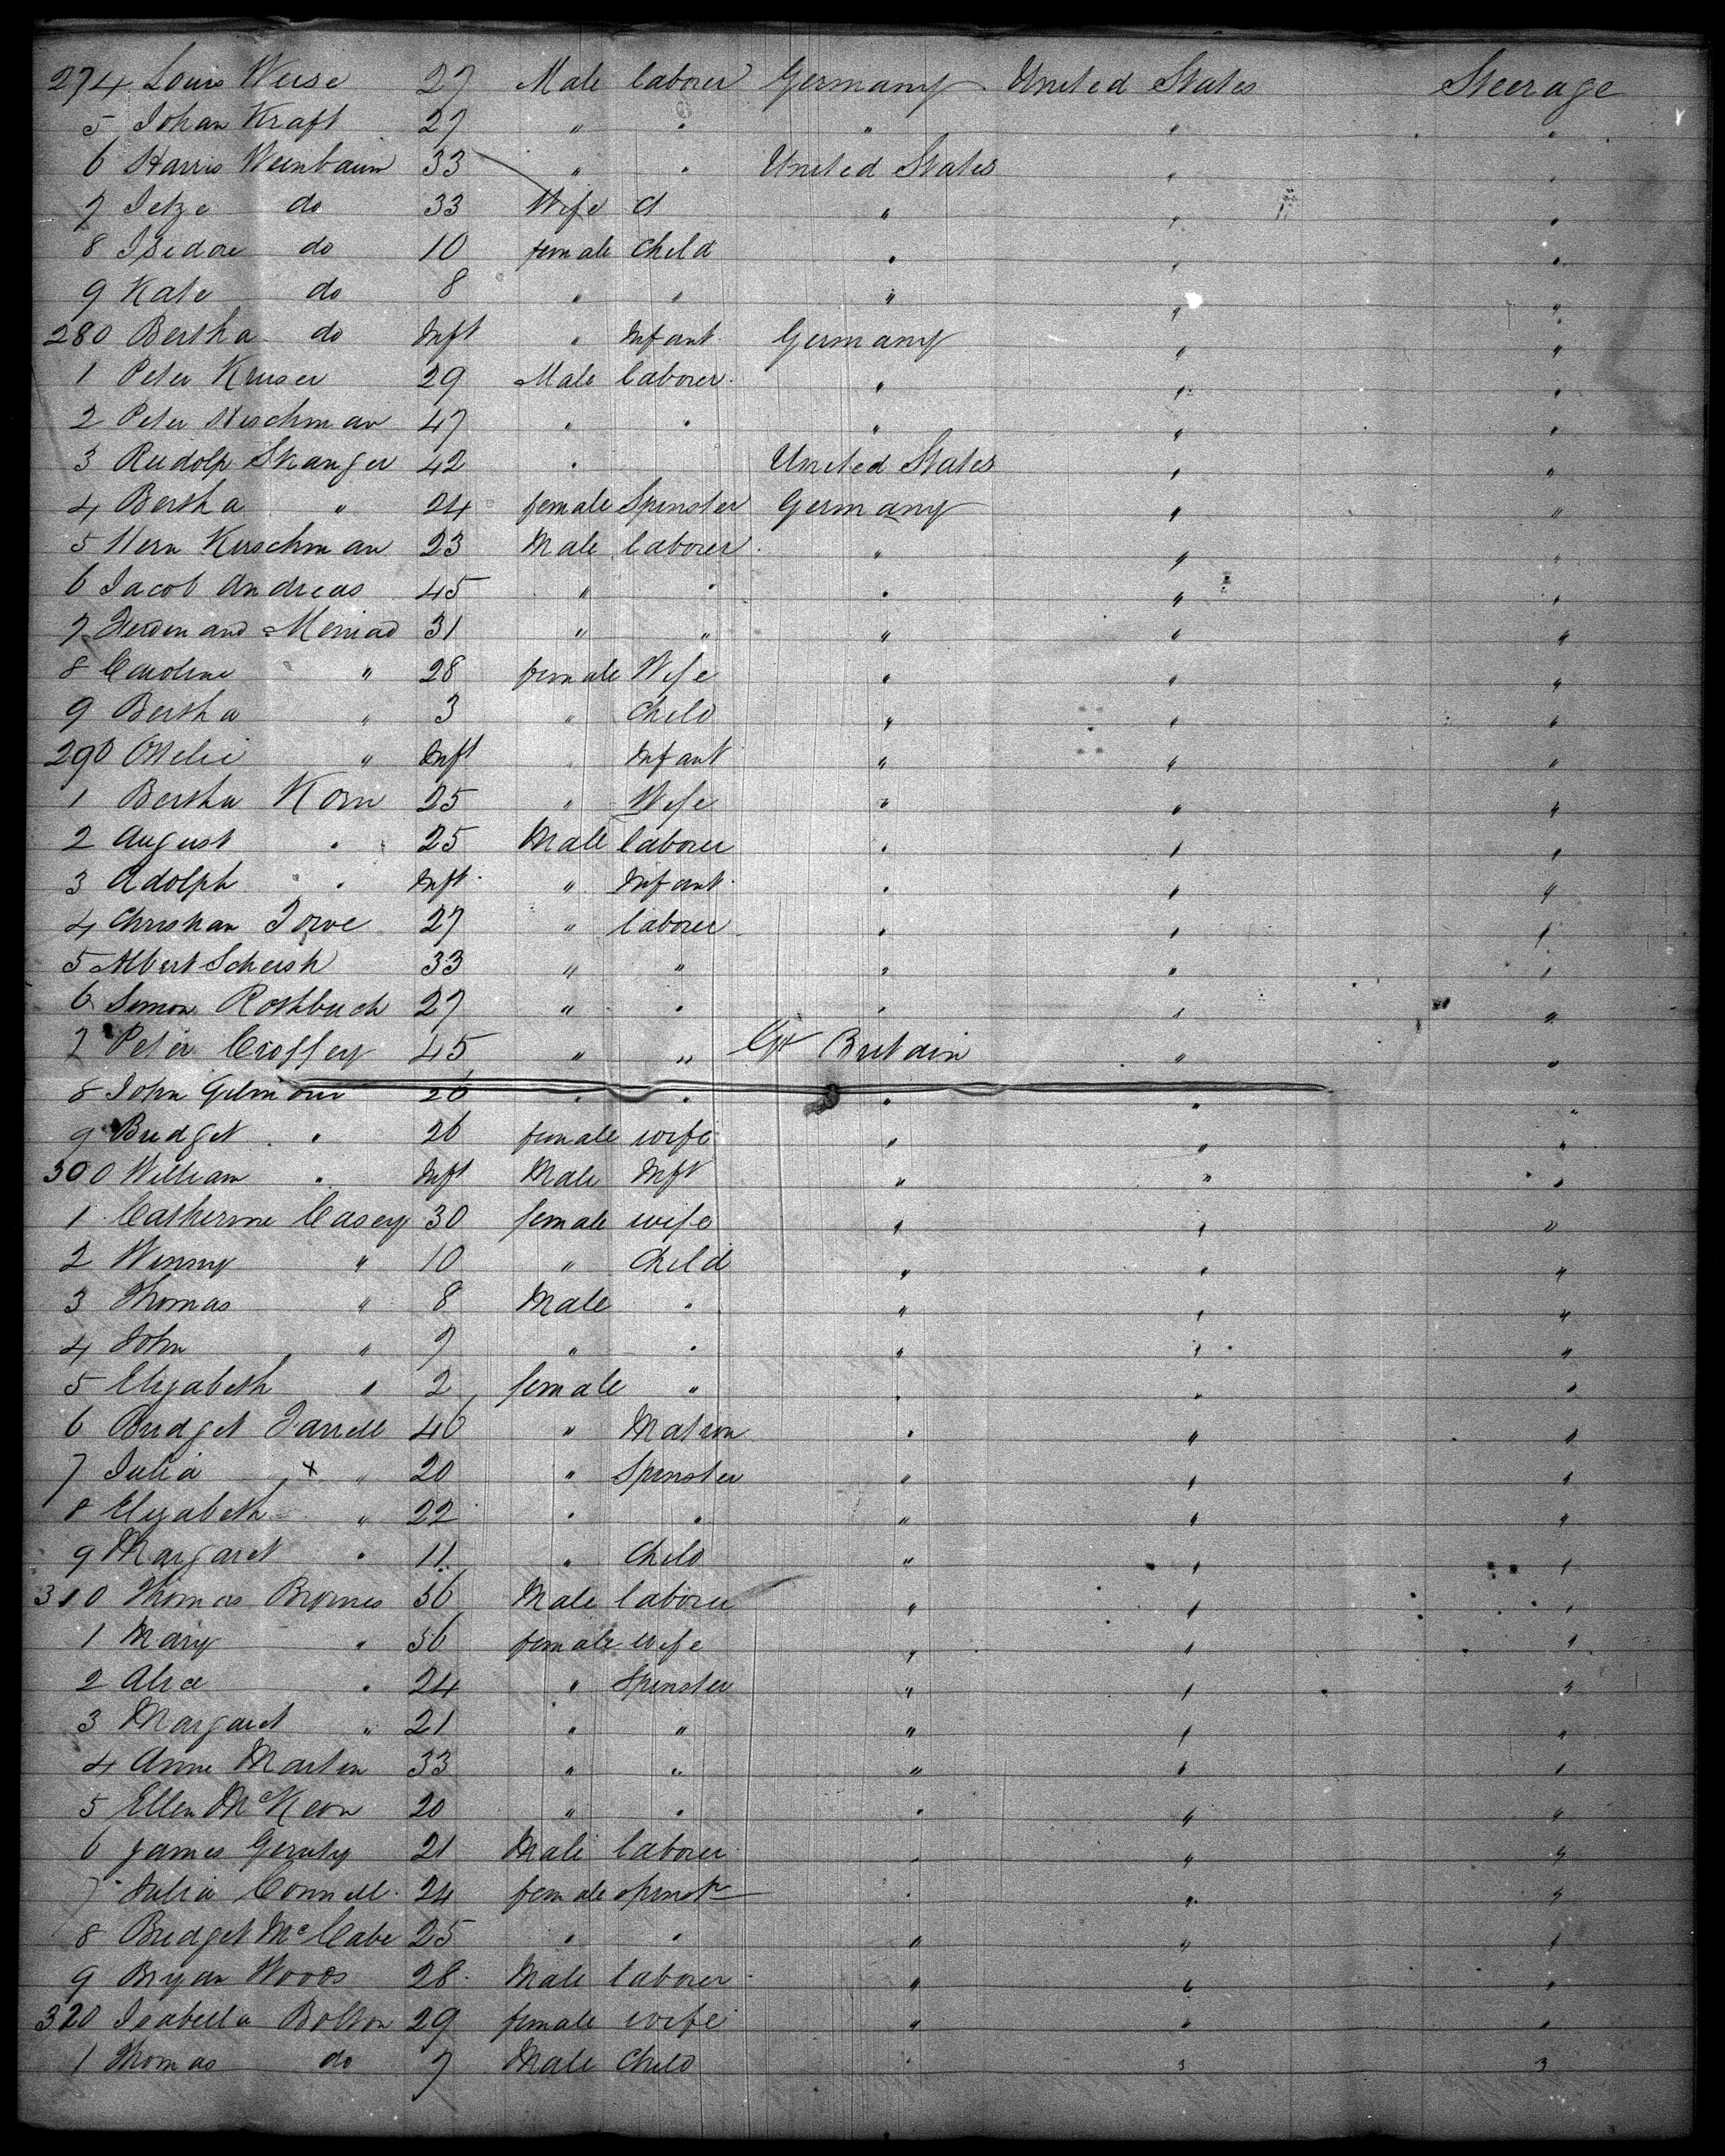 274 Louis Weise 27 Male laborer Germany United States Steerage
5 Johan Kraft 27 " " " " "
6 Harris Weinbaum 33 " " United States " "
7 Jetze do 33 Wife d " " "
8 Isidore do 10 female Child " " "
9 Kate do 8 " " " " "
280 Bertha do Inft " Infant Germany " "
1 Peter Kruser 29 Male laborer " " "
2 Peter 47 " " " " "
3 Rudolph Stanger 42 " United States " "
4 Bertha " 24 female Spinster Germany " "
5 Herm Kirschman 23 Male laborer " " "
6 Jacob Andreas 45 " " " " "
7 Ferdinand 31 " " " " "
8 Caroline " 28 female Wife " " "
9 Bertha " 3 " Child " " "
290 Ottelie " Inft " Infant " " "
1 Bertha Korn 25 " Wife " " "
2 August " 25 Male laborer " " "
3 Adolph " Inft " Infant " " "
4 Christian 27 " laborer " " "
5 Albert 33 " " " " "
6 Simon Rothbuch 27 " " " " "
7 Peter Croffey 45 " " Gt Britain " "
8 John Gilmour 26 " " " " "
9 Bridget " 26 female wife " " "
300 William " Inft Male Inft " " "
1 Catherine Casey 30 female wife " " "
2 Winny " 10 " Child " " "
3 Thomas " 8 Male " " " "
4 John " 7 " " " " "
5 Elizabeth " 2 female " " " "
6 Bridget Farrell 40 " Matron " " "
7 Julia x " 20 " Spinster " " "
8 Elizabeth " 22 " " " " "
9 Margaret " 11 " Child " " "
310 Thomas Byrnes 56 Male laborer " " "
1 Mary " 56 female wife " " "
2 Alice " 24 " Spinster " " "
3 Margaret " 21 " " " " "
4 Anne Martin 33 " " " " "
5 Ellen McKeon 20 " " " " "
6 James Geruty 21 Male laborer " " "
7 Julia Connell 24 female spinstr " " "
8 Bridget McCabe 25 " " " " "
9 Bryan Woods 28 Male laborer " " "
320 Isabella Bolton 29 female wife " " "
1 Thomas do 7 Male Child " " "